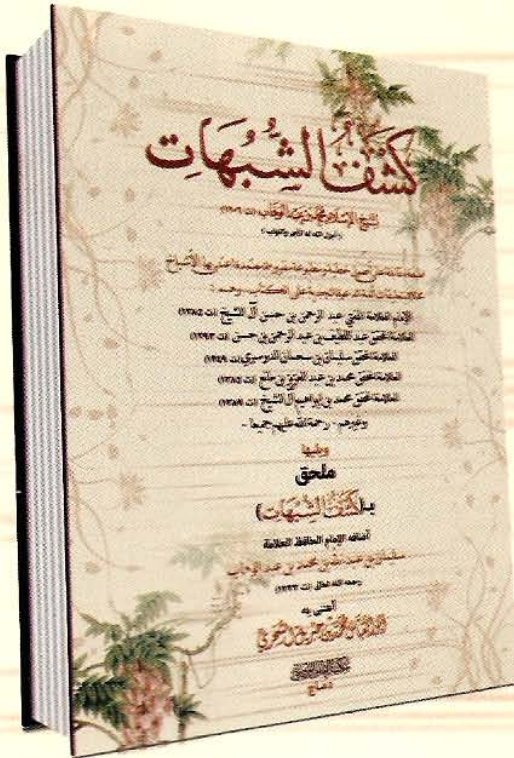 كشف الشبهات
لشيخ الإسلام محمد بن عبد الوهاب (ت ١٢٠٦)
(أجزل الله له الأجر والثواب)
على الكتاب، وهم:
الإمام العلامة المفتي عبد الرحمن بن حسن آل الشيخ (ت ١٢٨٥)
العلامة المحقق عبد اللطيف بن عبد الرحمن بن حسن (ت ١٢٩٣)
العلامة المحقق سليمان بن سحمان الدوسري (ت ١٣٤٩)
العلامة المحقق محمد بن عبد العزيز بن مانع (ت ١٣٨٥)
العلامة المحقق محمد بن إبراهيم آل الشيخ (ت ١٣٨٩)
وغيرهم - رحمة الله عليهم جميعا -
وعليها
ملحق
بـ(كشف الشبهات)
أضافه الإمام الحافظ العلامة
سليمان بن عبد الله بن محمد بن عبد الوهاب
رحمه الله تعالى (ت ١٢٣٣)
اعتنى به
دماج